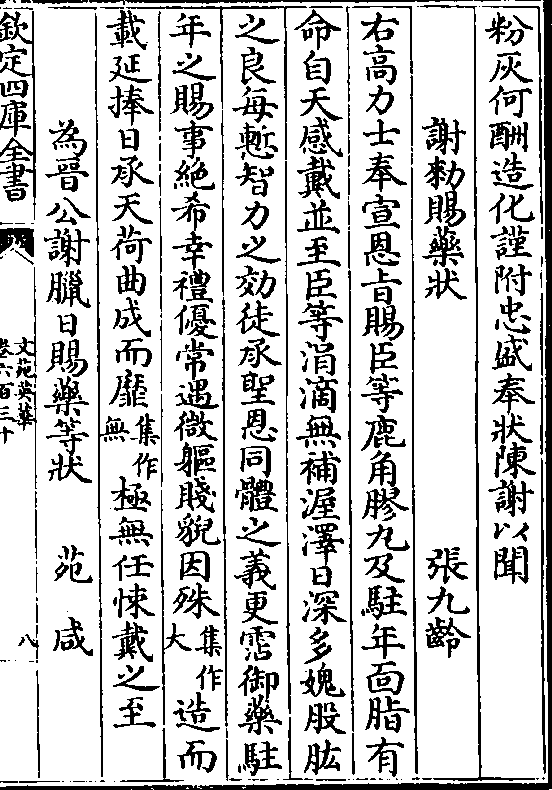 粉灰何酬造化謹附忠盛奉狀陳謝以聞
謝勅賜藥狀　張九齡
右高力士奉宣恩旨賜臣等鹿角膠丸及駐年面脂有
命自天感戴並至臣等涓滴無補渥澤日深多媿股肱
之良每慙智力之効徒承聖恩同體之義更霑御藥駐
年之賜事絶希幸禮優常遇微軀賤貌因殊集作大造而
載延捧日承天荷曲成而靡集作無極無任悚戴之至
為晉公謝臘日賜藥等狀　苑咸
欽定四庫全書
文苑英華
卷六百三十
八